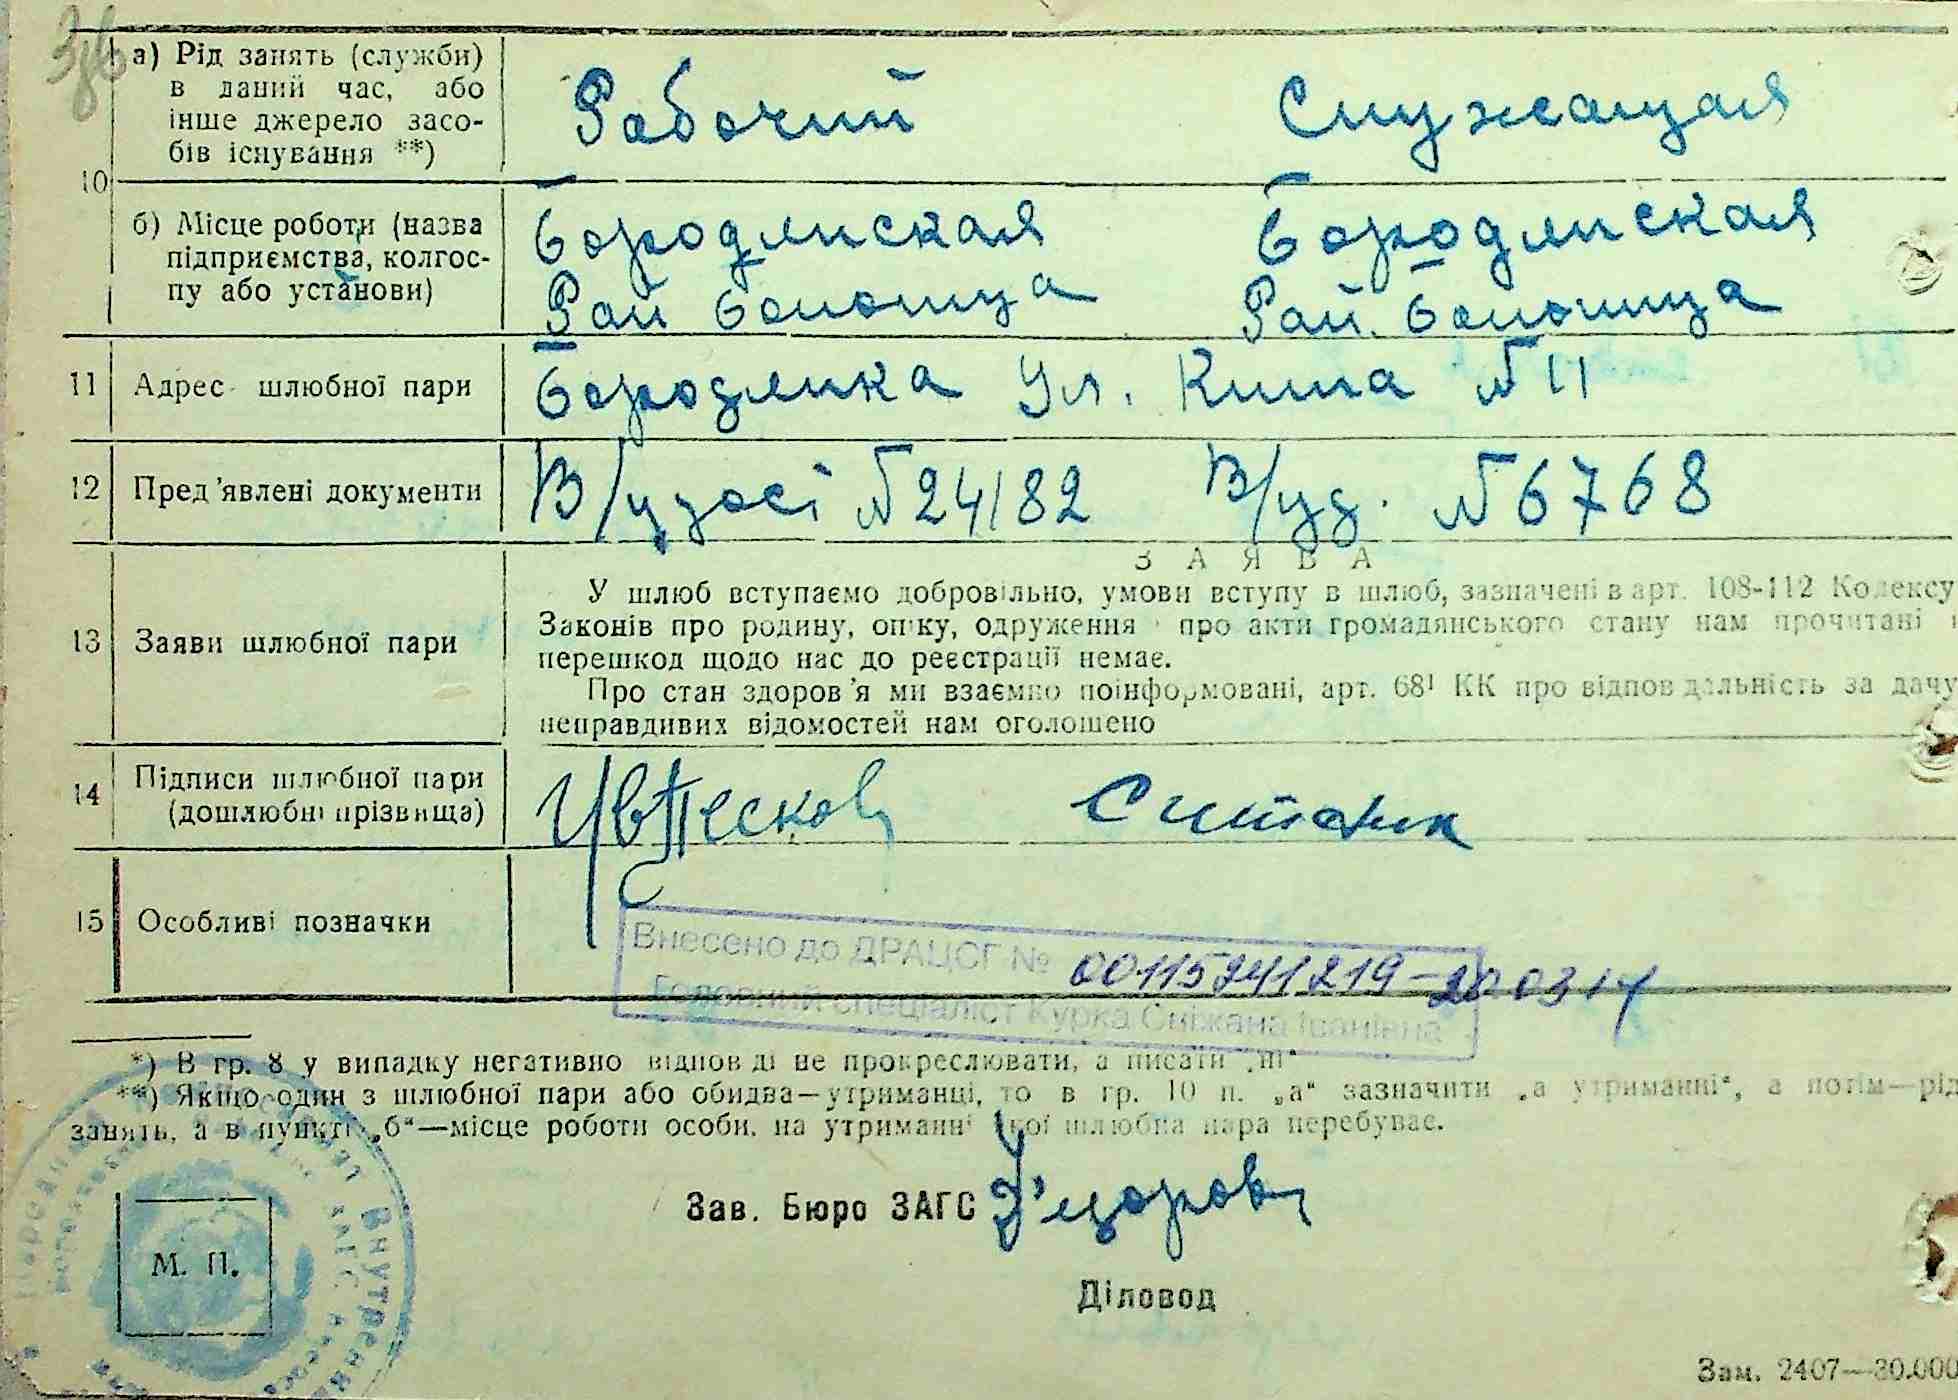 а) Рід занять (служби)
в даний час, або
інше джерело засо-
бів існування **)
Рабочий Служащая
10
б) Місце роботи (назва
підприємства, колгос-
пу або установи)
Бородянская Бородянская
Рай больница Рай. больница
11 Адрес шлюбної пари
Бородянка Ул. Кима № 11
12 Пред'явлені документи
В/ № 24182 В/уд. № 6768
ЗАЯВА
13 Заяви шлюбної пари
У шлюб вступаємо добровільно, умови вступу в шлюб, зазначені в арт. 108-112 Кодексу
Законів про родину, опіку, одруження і про акти громадянського стану нам прочитані і
перешкод щодо нас до реєстрації немає.
Про стан здоров'я ми взаємно поінформовані, арт. 68¹ КК про відповідальність за дачу
неправдивих відомостей нам оголошено
14 Підписи шлюбної пари
(дошлюбні прізвища)
15 Особливі позначки
Внесено до ДРАЦСГ № 00115241219-200314
Головний спеціаліст Курка Сніжана Іванівна
*) В гр. 8 у випадку негативно відповіді не прокреслювати, а писати „ні“
**) Якщо один з шлюбної пари або обидва—утриманці, то в гр. 10 п. „а“ зазначити „а утриманні“, а потім—рід
занять, а в пункті „б“—місце роботи особи, на утриманні якої шлюбна пара перебуває.
Зав. Бюро ЗАГС
М. П.
Діловод
Зам. 2407—30.000